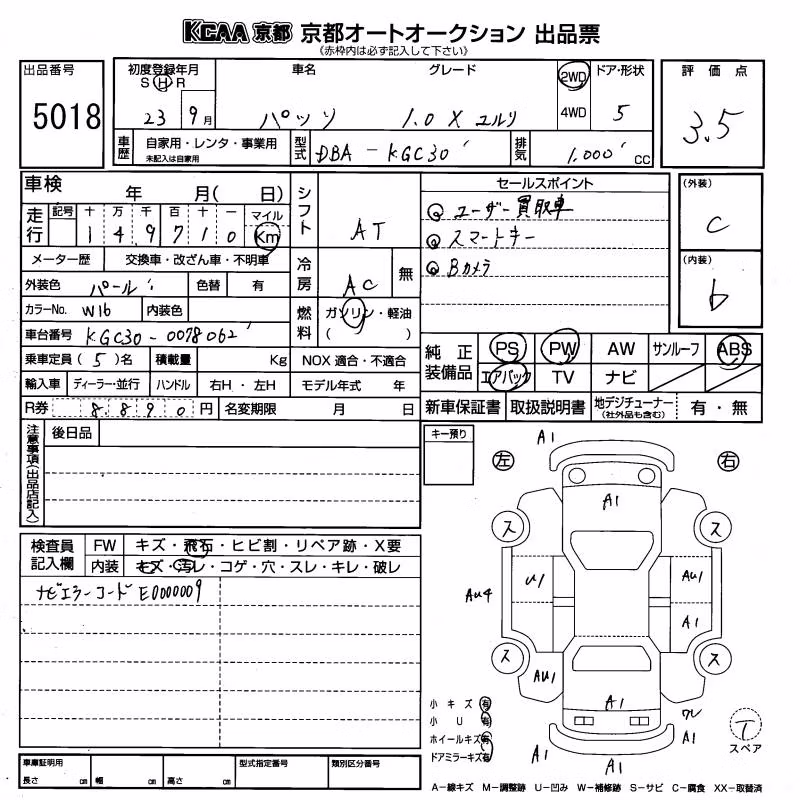 KCAA 京都 京都オートオークション 出品票
《赤枠内は必ず記入して下さい》
出品番号
5018
初度登録年月
S H R
23 9月
車名
パッソ
グレード
1.0 X ユルリ
2WD
4WD
ドア・形状
5
評価点
3.5
車歴
自家用・レンタ・事業用
未記入は自家用
型式
DBA - KGC30
排気
1,000 cc
車検 年 月( 日)
走行
記号 十 万 千 百 十 一 マイル
1 4 9 7 1 0 Km
メーター歴 交換車・改ざん車・不明車
外装色 パール 色替 有
カラーNo. W16 内装色
車台番号 KGC30-0078062
乗車定員 (5)名 積載量 Kg NOX 適合・不適合
輸入車 ディーラー・並行 ハンドル 右H・左H モデル年式 年
R券 8890円 名変期限 月 日
シフト AT
冷房 AC 無
燃料 ガソリン・軽油
( )
セールスポイント
ユーザー買取車
スマートキー
Bカメラ
(外装)
C
(内装)
b
純正装備品
PS PW AW サンルーフ ABS
エアバッグ TV ナビ
新車保証書 取扱説明書 地デジチューナー (社外品も含む) 有・無
注意事項(出品店記入)
後日品
キー預り
検査員記入欄
FW キズ・飛石・ヒビ割・リペア跡・X要
内装 キズ・汚レ・コゲ・穴・スレ・キレ・破レ
ナビエラーコード E0000009
左 右
A1
A1
ス ス
U1 AU1
AU4
A1
ス ス
AU1
A1
ワレ
A1
A1
A1
小キズ 有
小U 有
ホイールキズ 有
ドアミラーキズ 有
T
スペア
車庫証明用
長さ cm 幅 cm 高さ cm
型式指定番号
類別区分番号
A−線キズ M−調整跡 U−凹み W−補修跡 S−サビ C−腐食 XX−取替済